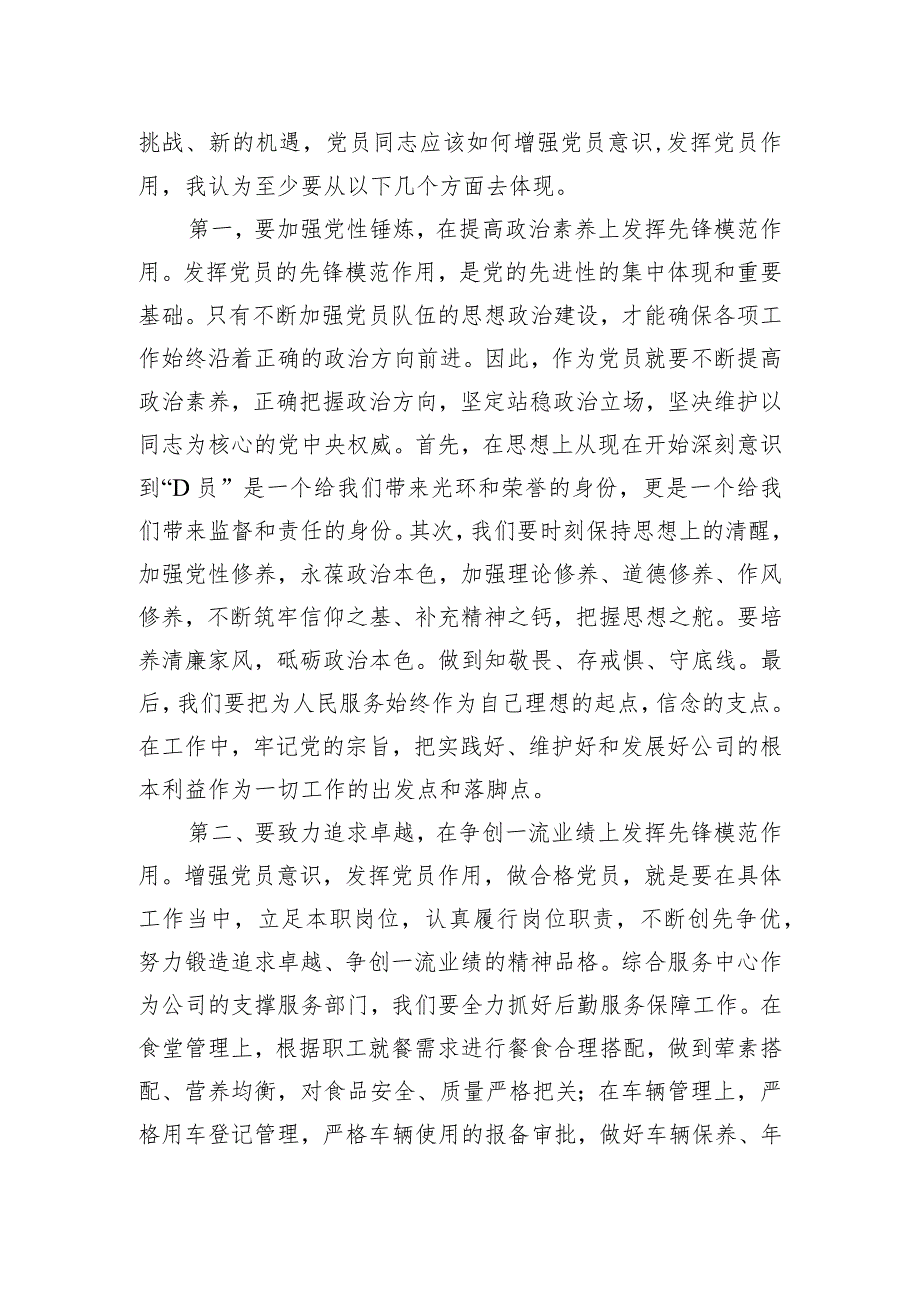 挑战、新的机遇，党员同志应该如何增强党员意识,发挥党员作
用，我认为至少要从以下几个方面去体现。
第一，要加强党性锤炼，在提高政治素养上发挥先锋模范作
用。发挥党员的先锋模范作用，是党的先进性的集中体现和重要
基础。只有不断加强党员队伍的思想政治建设，才能确保各项工
作始终沿着正确的政治方向前进。因此，作为党员就要不断提高
政治素养，正确把握政治方向，坚定站稳政治立场，坚决维护以
同志为核心的党中央权威。首先，在思想上从现在开始深刻意识
到“D 员”是一个给我们带来光环和荣誉的身份，更是一个给我
们带来监督和责任的身份。其次，我们要时刻保持思想上的清醒，
加强党性修养，永葆政治本色，加强理论修养、道德修养、作风
修养，不断筑牢信仰之基、补充精神之钙，把握思想之舵。要培
养清廉家风，砥砺政治本色。做到知敬畏、存戒惧、守底线。最
后，我们要把为人民服务始终作为自己理想的起点，信念的支点。
在工作中，牢记党的宗旨，把实践好、维护好和发展好公司的根
本利益作为一切工作的出发点和落脚点。
第二、要致力追求卓越，在争创一流业绩上发挥先锋模范作
用。增强党员意识，发挥党员作用，做合格党员，就是要在具体
工作当中，立足本职岗位，认真履行岗位职责，不断创先争优，
努力锻造追求卓越、争创一流业绩的精神品格。综合服务中心作
为公司的支撑服务部门，我们要全力抓好后勤服务保障工作。在
食堂管理上，根据职工就餐需求进行餐食合理搭配，做到荤素搭
配、营养均衡，对食品安全、质量严格把关；在车辆管理上，严
格用车登记管理，严格车辆使用的报备审批，做好车辆保养、年